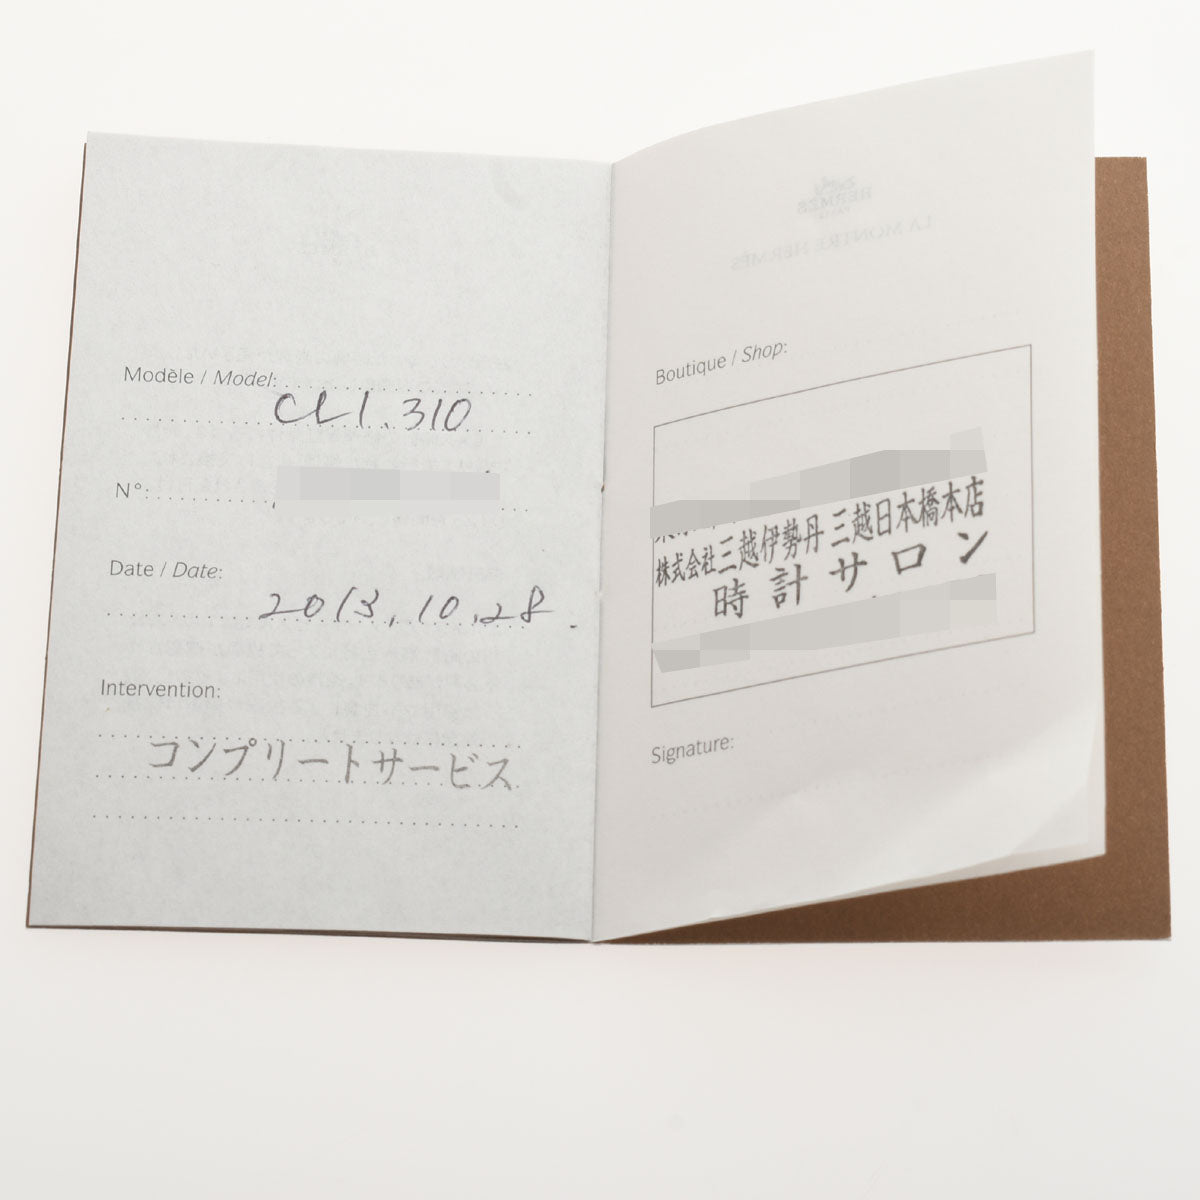 Modèle / Model:
CL1.310
N°:
Date / Date:
2013.10.28.
Intervention:
コンプリートサービス
HERMÈS
PARIS
LA MONTRE HERMÈS
Boutique / Shop:
株式会社三越伊勢丹 三越日本橋本店
時計サロン
Signature: